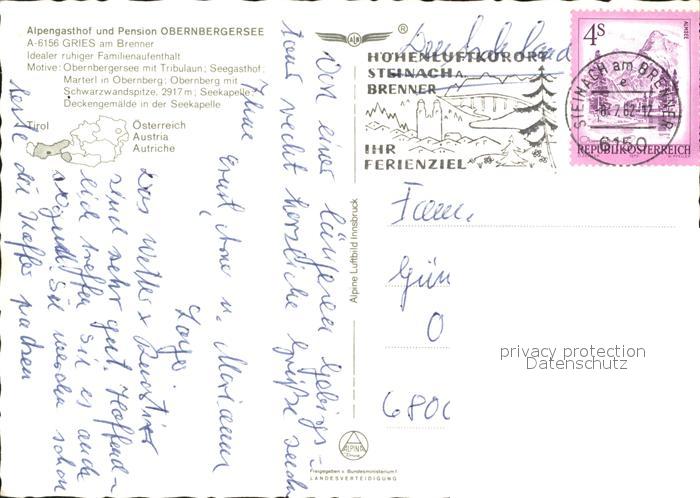 Alpengasthof und Pension OBERNBERGERSEE
A-6156 GRIES am Brenner
Idealer ruhiger Familienaufenthalt
Motive: Obernbergersee mit Tribulaun; Seegasthof;
Marterl in Obernberg; Obernberg mit
Schwarzwandspitze, 2917 m; Seekapelle;
Deckengemälde in der Seekapelle
Tirol
Österreich
Austria
Autriche
Von einer längeren Gebirgs-
tour recht herzliche Grüße senden
Ihnen
Ernst, Anne u. Mariann
Das Wetter &
sind sehr gut. Hoffend-
lich treffen Sie es auch
Sie werden schon
heute die Koffer packen
Alpine Luftbild Innsbruck
ALPINE
Freigegeben v. Bundesministerium f.
LANDESVERTEIDIGUNG
®
Deutschland
HÖHENLUFTKURORT
STEINACH A.
BRENNER
IHR
FERIENZIEL
STEINACH am BRENNER
6150
4S
REPUBLIK ÖSTERREICH
Fam.
Gün
O
6800
privacy protection
Datenschutz